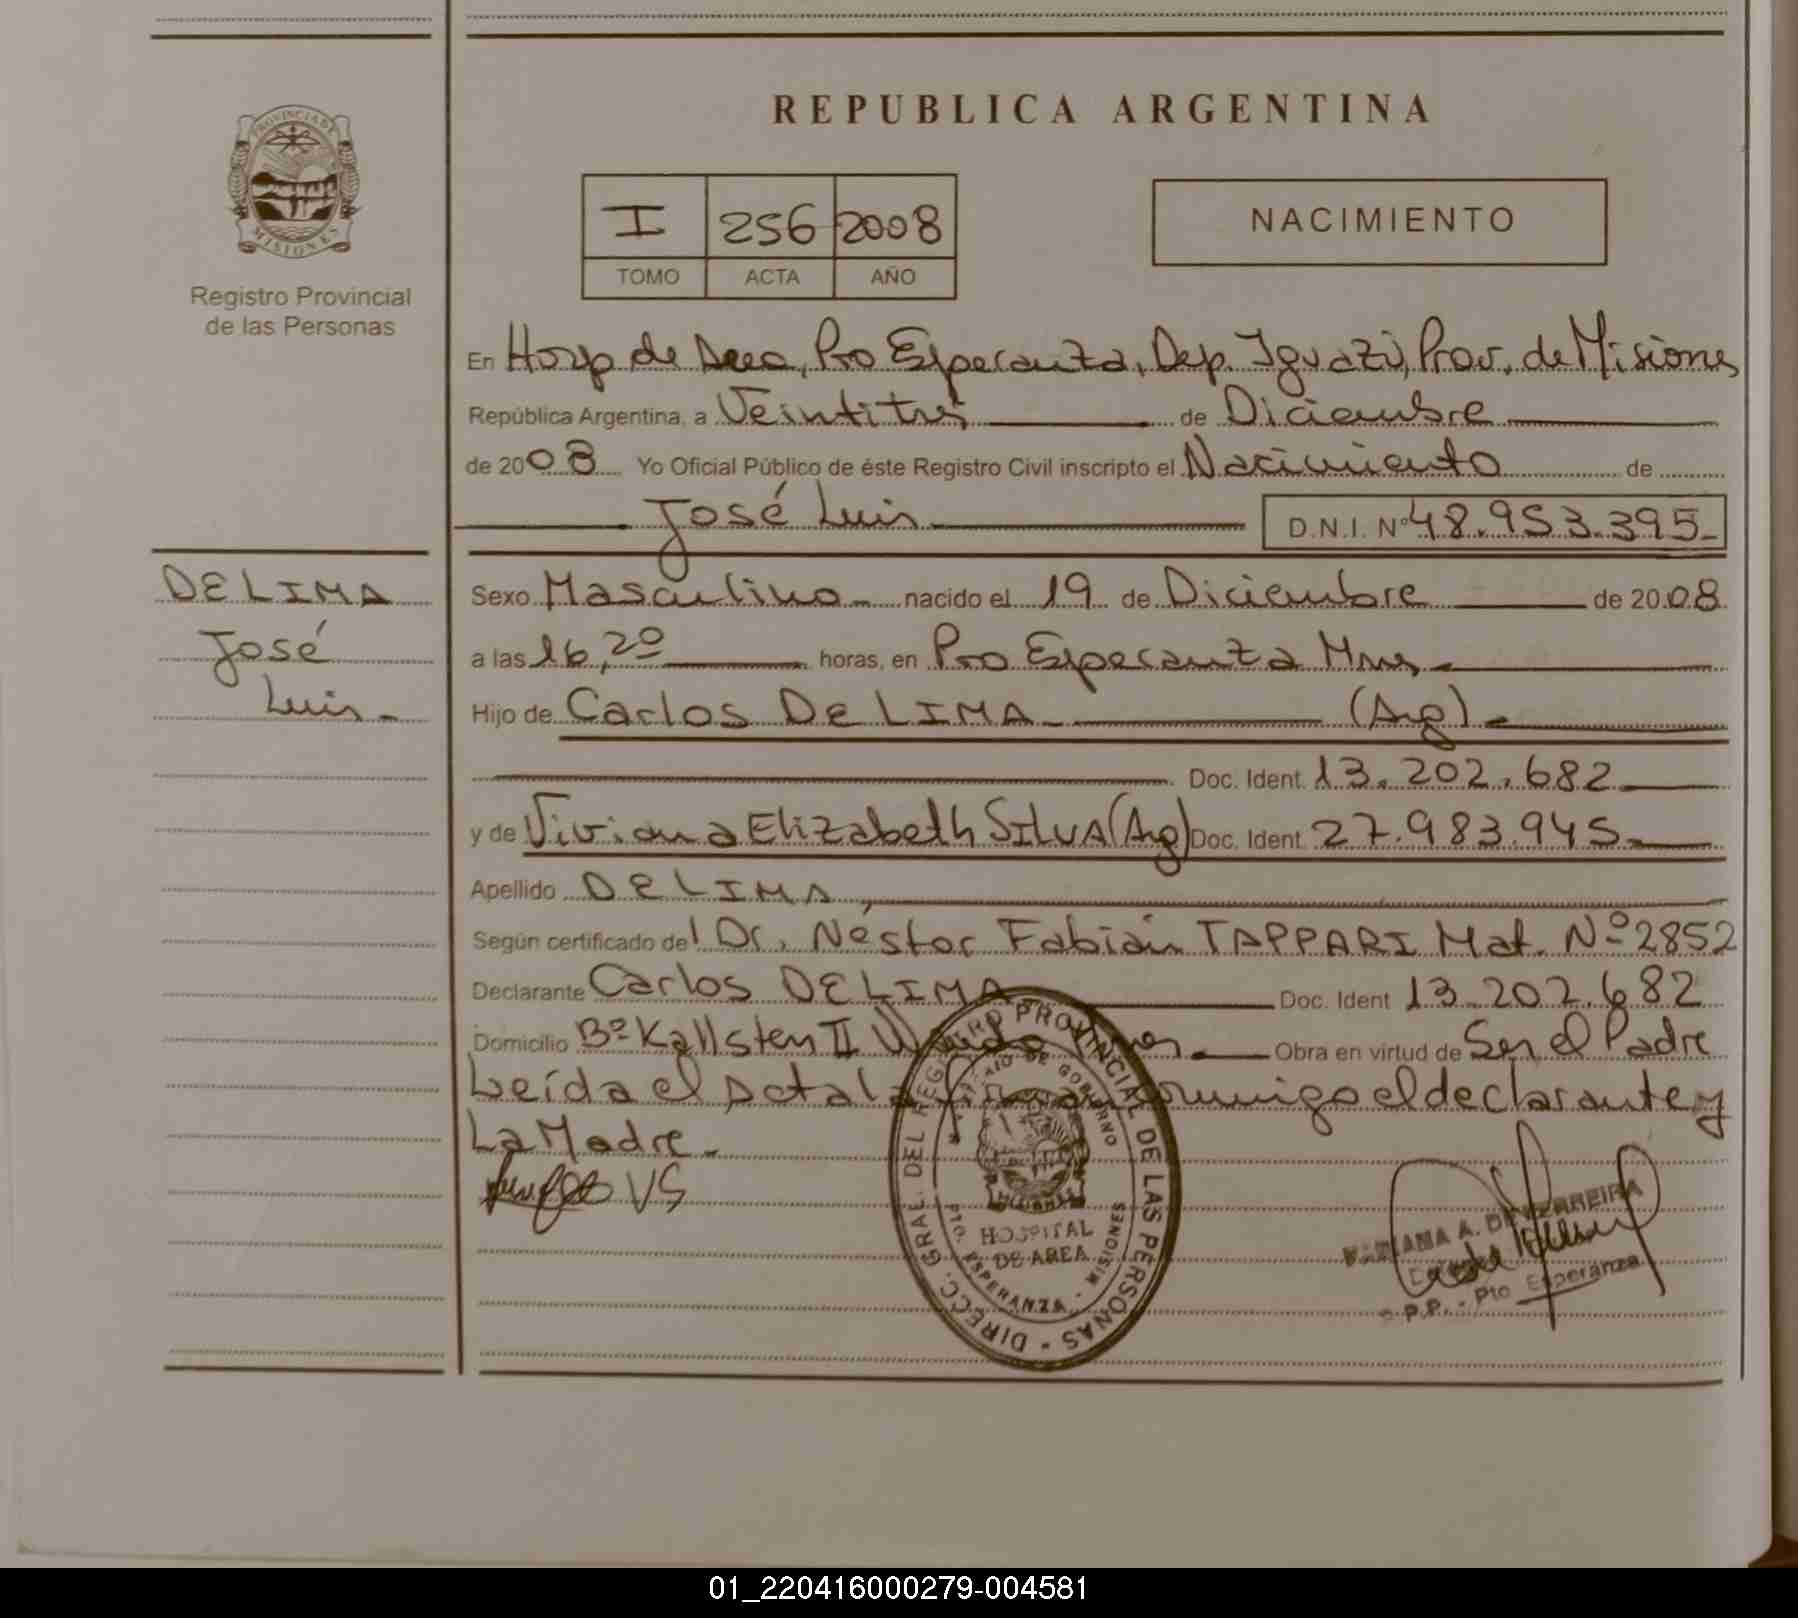 REPUBLICA ARGENTINA
PROVINCIA DE
MISIONES
Registro Provincial
de las Personas
I 256 2008
TOMO ACTA AÑO
NACIMIENTO
En Hosp de Area, Pto Esperanza, Dep. Iguazú, Prov. de Misiones
República Argentina, a Veintitrés de Diciembre
de 2008 Yo Oficial Público de éste Registro Civil inscripto el Nacimiento de
José Luis D.N.I. Nº 48.953.395-
DE LIMA
José
Luis-
Sexo Masculino- nacido el 19 de Diciembre de 2008
a las 16,20 horas, en Pto Esperanza Mnes-
Hijo de Carlos DE LIMA- (Arg)-
Doc. Ident. 13.202.682
y de Viviana Elizabeth SILVA (Arg) Doc. Ident. 27.983.945-
Apellido DE LIMA,
Según certificado del Dr. Néstor Fabián TAPPARI Mat. Nº 2852
Declarante Carlos DE LIMA Doc. Ident 13.202.682
Domicilio Bº Kallsten II Wanda Mnes- Obra en virtud de Ser el Padre
Leída el Acta la firman conmigo el declarante y
La Madre-
VS
DIRECC. GRAL. DEL REGISTRO PROVINCIAL DE LAS PERSONAS -
DE GOBIERNO
HOSPITAL
DE AREA
PTO. ESPERANZA - MISIONES
A. DE FERREIRA
R.P.P. - Pto Esperanza
01_220416000279-004581